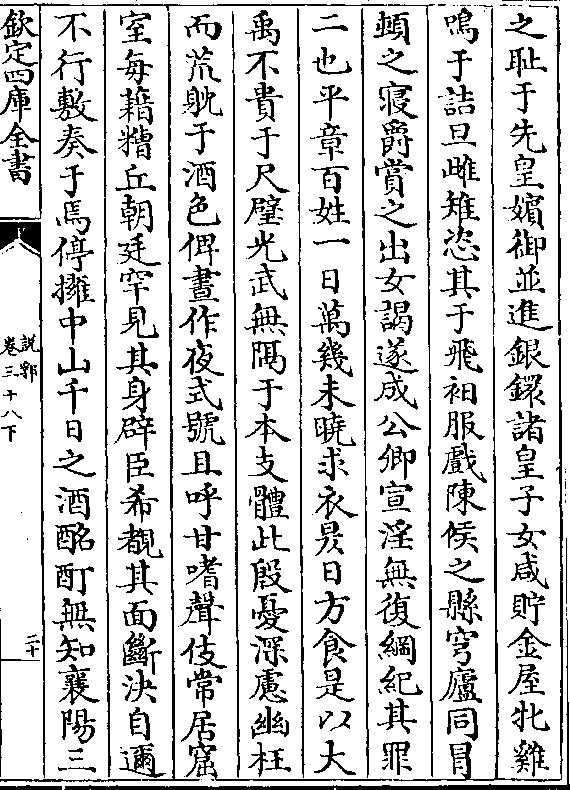 之恥于先皇嬪御並進銀鐶諸皇子女咸貯金屋牝雞
鳴于詰旦雌雉恣其于飛衵服戲陳侯之縣穹廬同冒
頓之寢爵賞之出女謁遂成公卿宣淫無復綱紀其罪
二也平章百姓一日萬幾未曉求衣昃日方食是以大
禹不貴于尺璧光武無隔于本支體此殷憂深慮幽枉
而荒躭于酒色俾晝作夜式號且呼甘嗜聲伎常居窟
室每藉糟丘朝廷罕見其身辟臣希覩其面斷決自邇
不行敷奏于焉停擁中山千日之酒酩酊無知襄陽三
欽定四庫全書
說郛
卷三十八下
二十